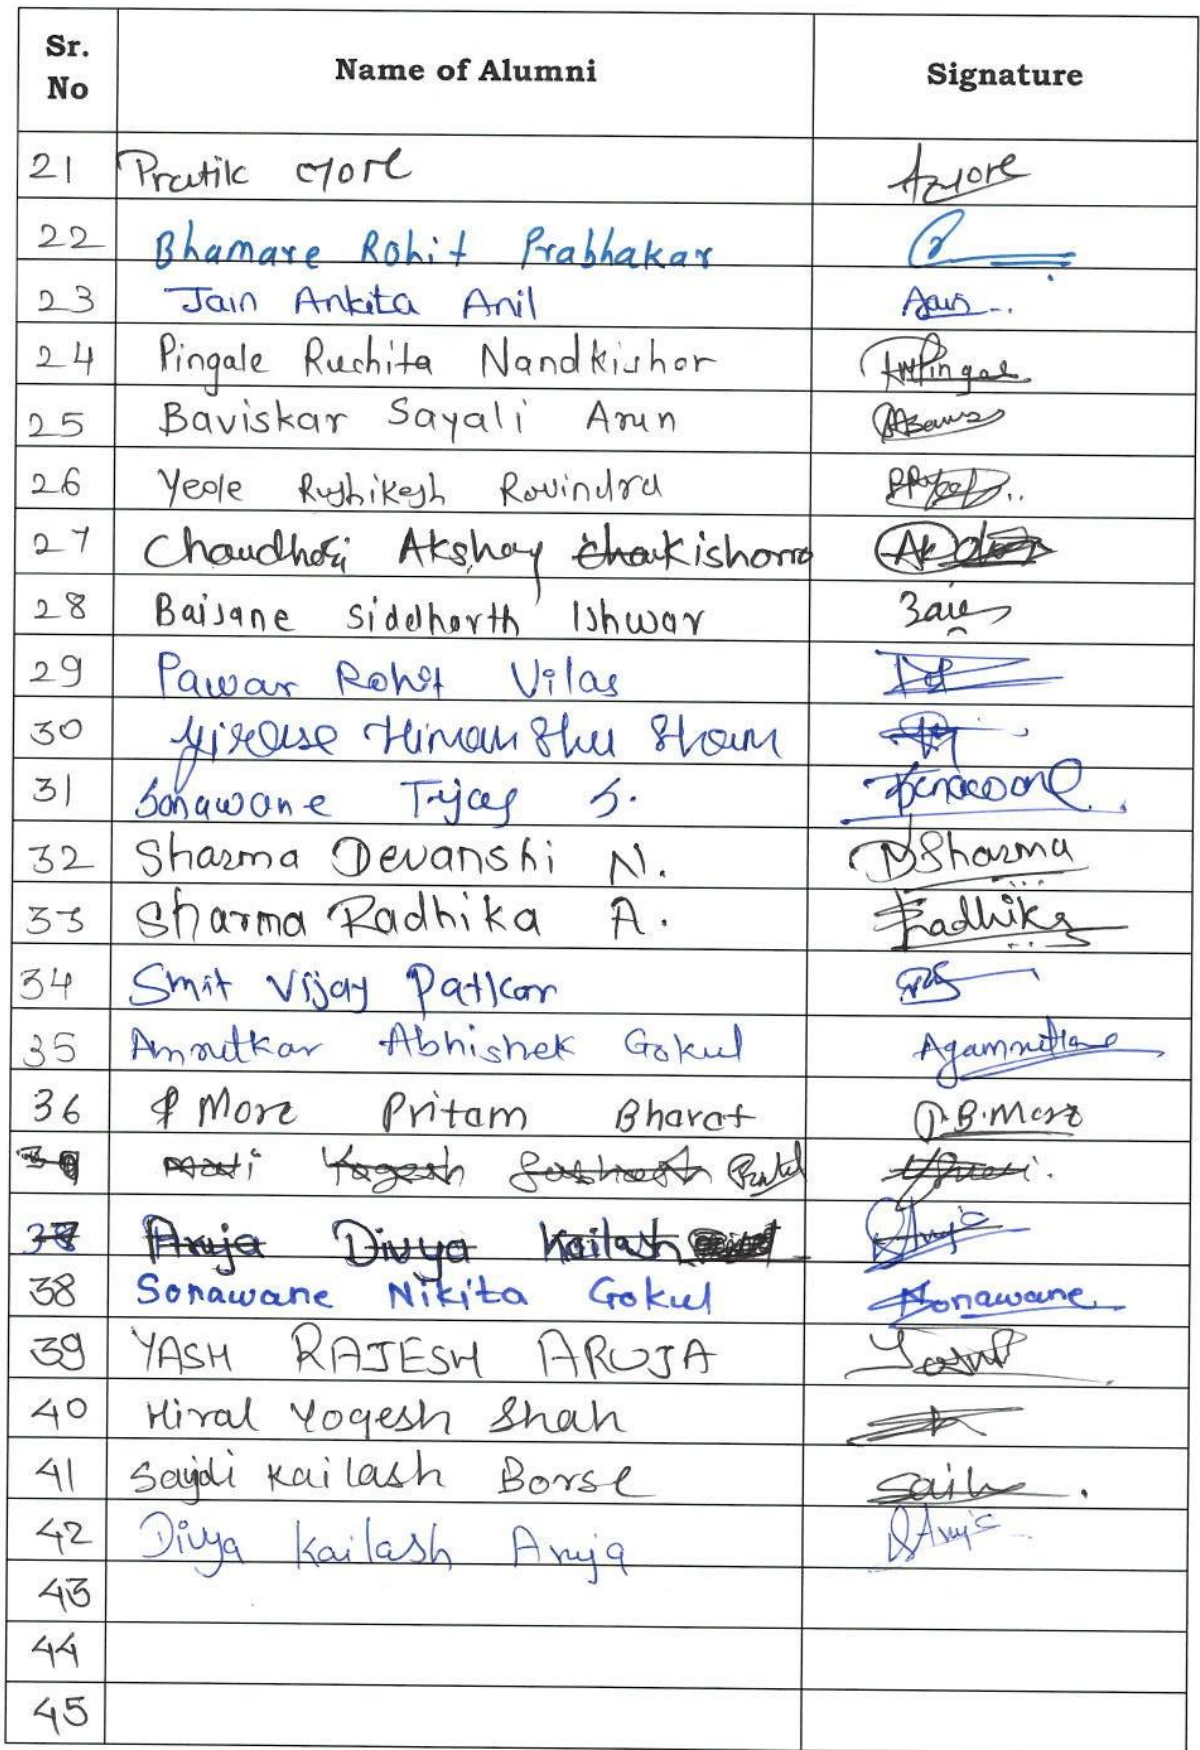 Sr. No Name of Alumni Signature
21 Pratik More Amore
22 Bhamare Rohit Prabhakar
23 Jain Ankita Anil
24 Pingale Ruchita Nandkishor Pingale
25 Baviskar Sayali Arun
26 Yeole Rushikesh Ravindra
27 Chaudhari Akshay Kishorrao
28 Baisane Siddharth Ishwar
29 Pawar Rohit Vilas
30 Girase Himanshu Sham
31 Sonawane Tejas S. Sonawane
32 Sharma Devanshi N. DSharma
33 Sharma Radhika A. Radhika
34 Smit Vijay Patkar
35 Amrutkar Abhishek Gokul Agamrutkar
36 More Pritam Bharat P.B.More
Mali Yogesh
37 Aruja Divya Kailash Aruja
38 Sonawane Nikita Gokul Sonawane
39 YASH RAJESH ARUJA Yash
40 Hiral Yogesh Shah
41 Kailash Borse
42 Divya Kailash Aruja Aruja
43
44
45